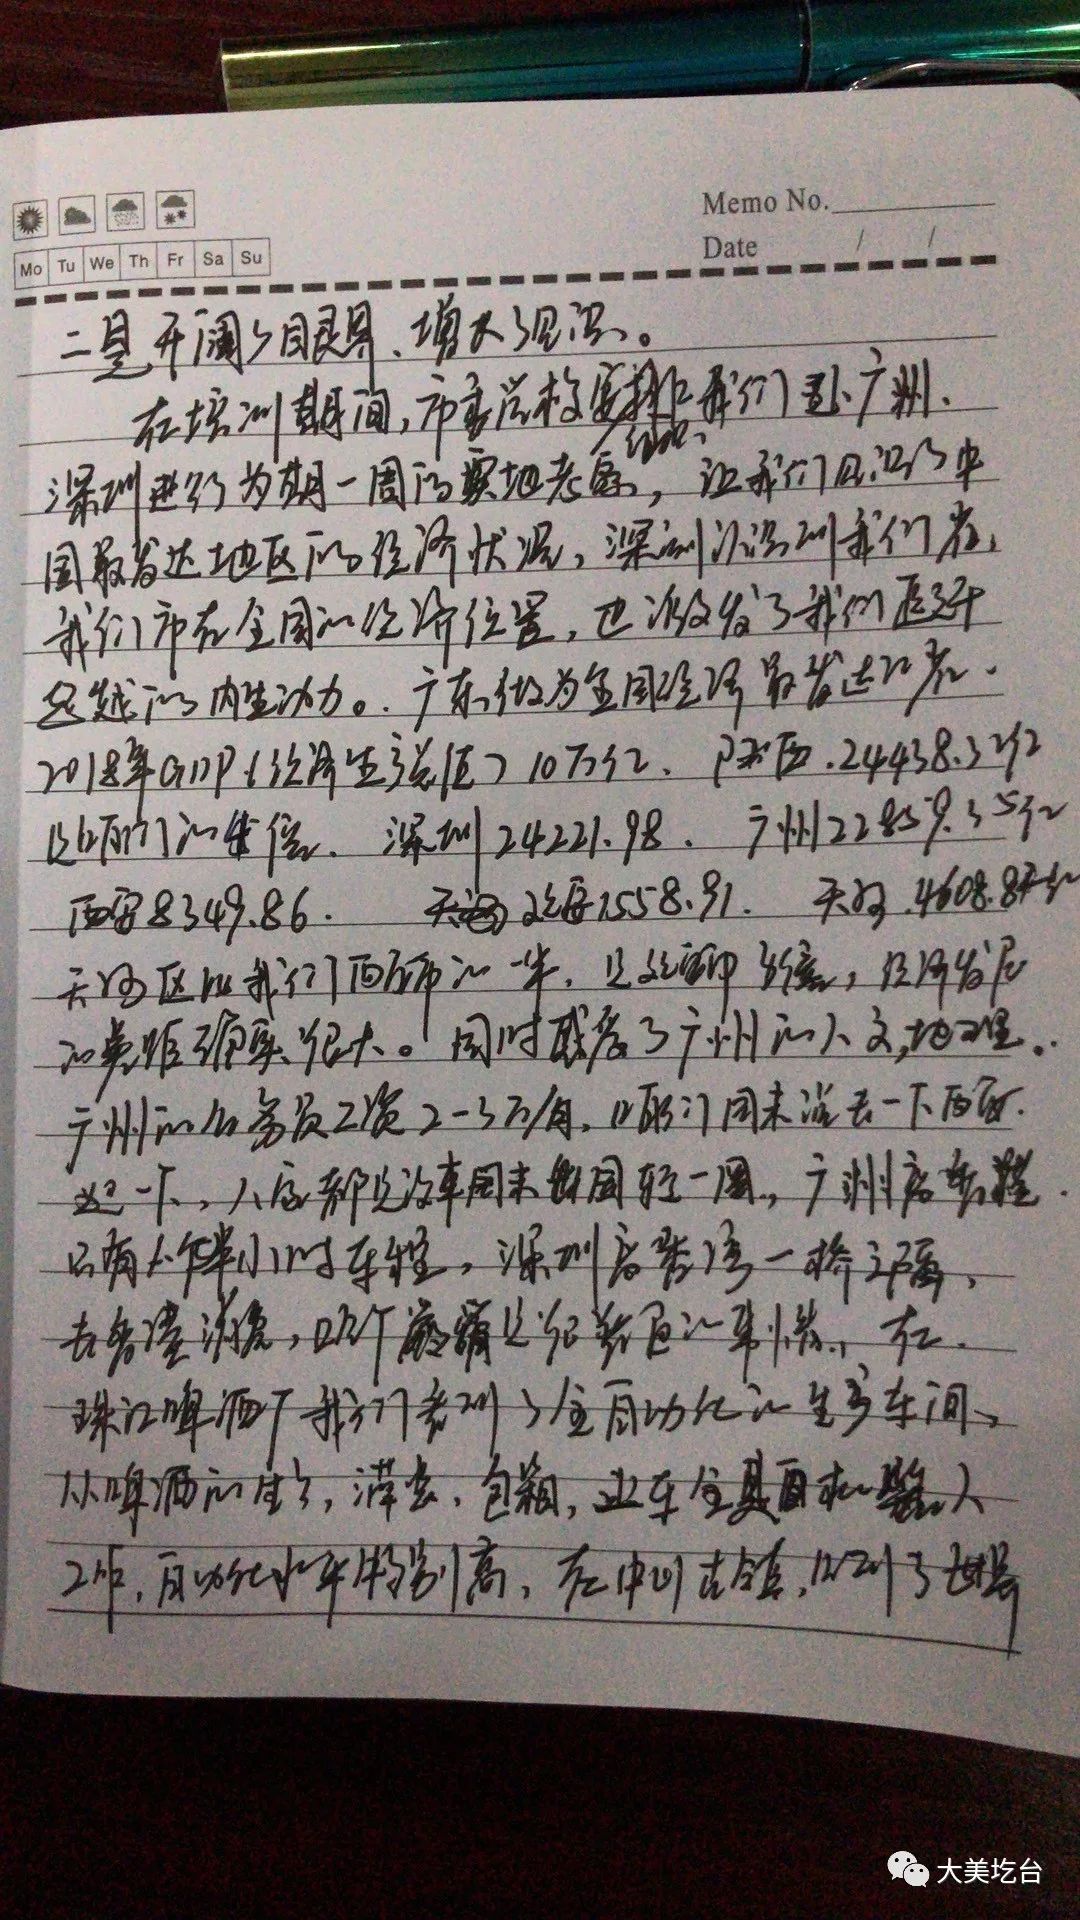 Memo No.
Date / /
Mo Tu We Th Fr Sa Su
二是开阔了眼界、增大了见识。
在培训期间,市委党校安排我们到广州、
组织
深圳进行为期一周的实地考察,让我们见识了中
国最发达地区的经济状况,深刻认识到我们省、
我们市在全国的经济位置,也激发了我们追赶
超越的内生动力。广东做为全国经济最发达的省、
2018年GDP(经济生产总值)10万亿、陕西.24438.32亿
是我们的4倍、深圳24221.98、广州22859.35亿
西安8349.86. 1558.91. 天河.4608.8
天河区比我们西安市的一半,经济发展
的差距确实很大。同时感受了广州的人文,地理、
广州的公务员工资2-3万/月,周末说去一下西
人家都是没事周末出国转一圈,广州离香港
只有个半小时车程,深圳离香港湾一桥之隔、
去香港消费,在
珠江啤酒厂我们看到了全自动化的生产车间、
从啤酒的生产,灌装、包箱,装车全是自动机器人
工作,自动化水平特别高,在中山古镇,见到了世界
大美圪台